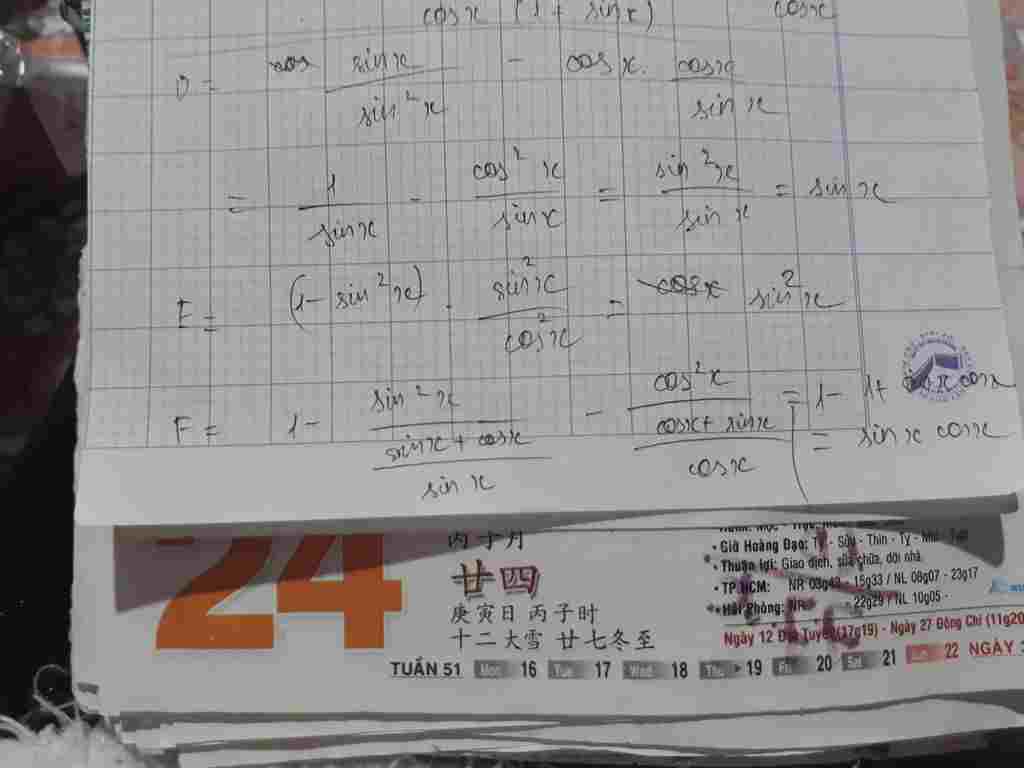 cosx (1 + sinx) cosx
D = sinx / sin²x - cosx. cosx / sinx
= 1 / sinx - cos²x / sinx = sin²x / sinx = sinx
E = (1 - sin²x) . sin²x / cos²x = sin²x
F = 1 - sin²x / ((sinx + cosx) / sinx) - cos²x / ((cosx + sinx) / cosx) = 1 - 1 + sinx cosx
= sinx cosx
24
丙子月
廿四
庚寅日 丙子时
十二大雪 廿七冬至
• Giờ Hoàng Đạo: Tý - Sửu - Thìn - Tỵ - Mùi - Tuất
• Thuận lợi: Giao dịch, sửa chữa, dời nhà.
• TP.HCM: NR 03g43 - 15g33 / NL 08g07 - 23g17
• Hải Phòng: NR - 22g29 / NL 10g05 -
Ngày 12 Đại Tuyết (17g19) - Ngày 27 Đông Chí (11g20
TUẦN 51 Mon 16 Tue 17 Wed 18 Thu 19 Fri 20 Sat 21 Sun 22 NGÀY